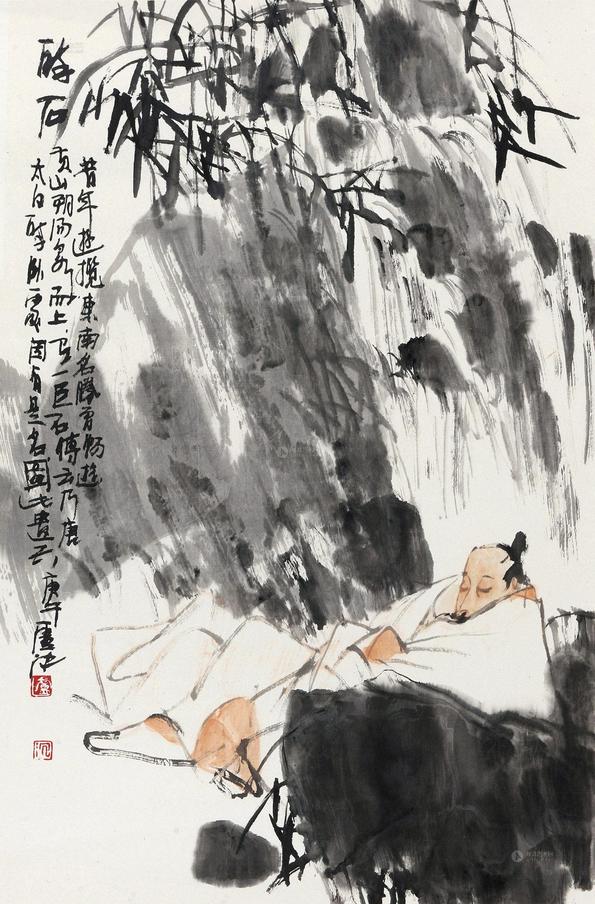 醉石
昔年游揽东南名胜曾畅游
黄山朔汤泉而上,有一巨石传云乃唐
太白醉卧处因有是名图此遣
庚午卢沉